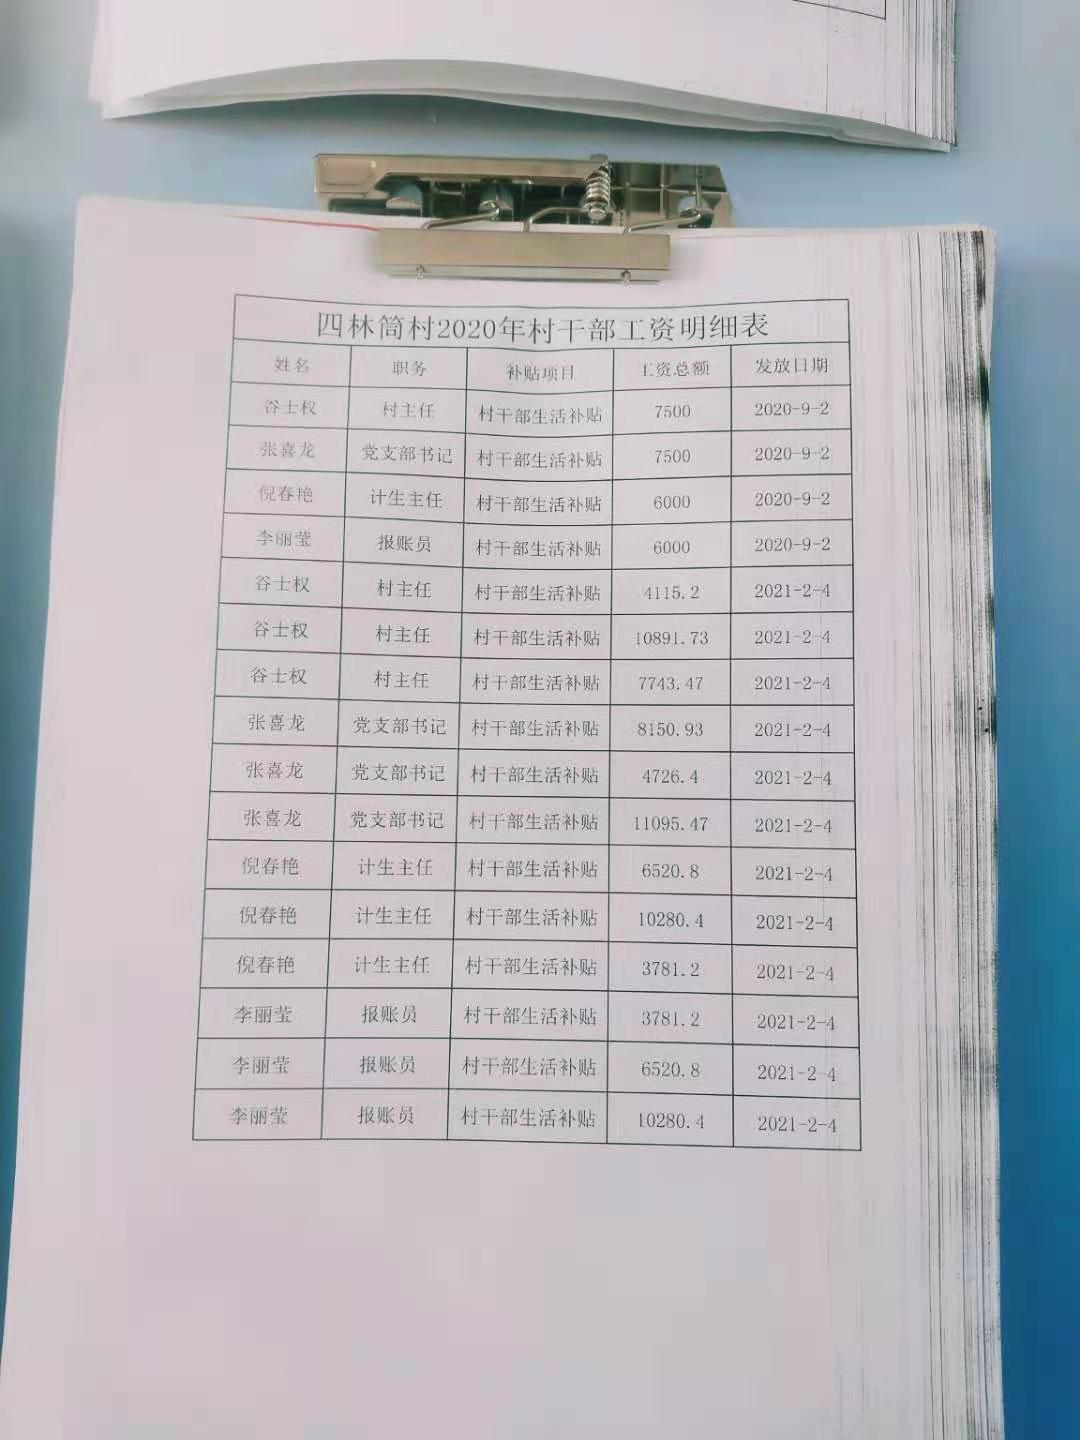 四林筒村2020年村干部工资明细表
姓名 职务 补贴项目 工资总额 发放日期
谷士权 村主任 村干部生活补贴 7500 2020-9-2
张喜龙 党支部书记 村干部生活补贴 7500 2020-9-2
倪春艳 计生主任 村干部生活补贴 6000 2020-9-2
李丽莹 报账员 村干部生活补贴 6000 2020-9-2
谷士权 村主任 村干部生活补贴 4115.2 2021-2-4
谷士权 村主任 村干部生活补贴 10891.73 2021-2-4
谷士权 村主任 村干部生活补贴 7743.47 2021-2-4
张喜龙 党支部书记 村干部生活补贴 8150.93 2021-2-4
张喜龙 党支部书记 村干部生活补贴 4726.4 2021-2-4
张喜龙 党支部书记 村干部生活补贴 11095.47 2021-2-4
倪春艳 计生主任 村干部生活补贴 6520.8 2021-2-4
倪春艳 计生主任 村干部生活补贴 10280.4 2021-2-4
倪春艳 计生主任 村干部生活补贴 3781.2 2021-2-4
李丽莹 报账员 村干部生活补贴 3781.2 2021-2-4
李丽莹 报账员 村干部生活补贴 6520.8 2021-2-4
李丽莹 报账员 村干部生活补贴 10280.4 2021-2-4